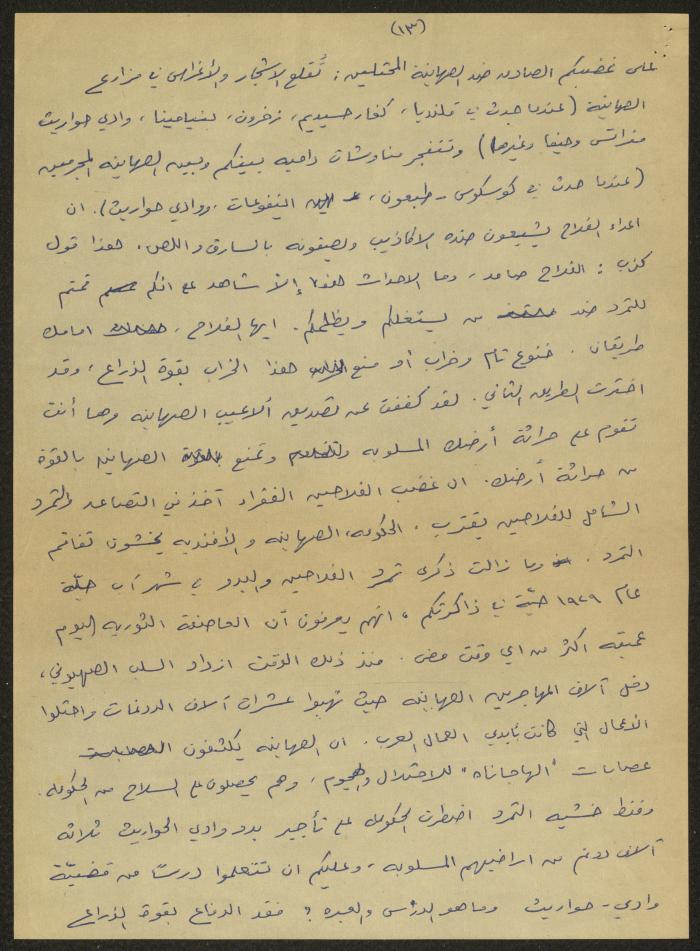 (١٣)
على غضبكم الصادق ضد الصهاينة المحتلين: تُقلع الاشجار والأغراس في مزارع
الصهاينة (عندما حدث في قلنديا، كفار حسيديم، زخرون، بنيامينا، وادي حواريث
وحيفا وغيرها) وتتفجر مناوشات داميه بينكم وبين الصهاينه المجرمين
(عندما حدث في كوسكوس - طبعون، النفيعات، ووادي حواريث). ان
اعداء الفلاح يشيعون هذه الاكاذيب ويصفونه بالسارق واللص. هذا قول
كذب: الفلاح صامد، وما الاحداث هذه إلاّ شاهد على انكم قمتم
للتمرد ضد من يستغلكم ويظلمكم. ايها الفلاح، امامك
طريقان. خنوع تام وخراب أو منع هذا الخراب بقوة الذراع، وقد
اخترت الطريق الثاني. لقد كففت عن تصديق ألاعيب الصهاينه وها أنت
تقوم على حراثة أرضك المسلوبه وتمنع الصهاينه بالقوة
من حراثة أرضك. ان غضب الفلاحين الفقراء آخذ في التصاعد والتمرد
الشامل للفلاحين يقترب. الحكومه، الصهاينه والأفنديه يخشون تفاقم
التمرد. وما زالت ذكرى تمرد الفلاحين والبدو في شهر آب
عام ١٩٢٩ حيّة في ذاكرتكم، انهم يعرفون أن العاصفة الثوريه اليوم
عميقه اكثر من اي وقت مضى. منذ ذلك الوقت ازداد السلب الصهيوني،
دخل آلاف المهاجرين الصهاينه حيث نهبوا عشرات آلاف الدونمات واحتلوا
الأعمال التي كانت بأيدي العمال العرب. ان الصهاينه يكثفون
عصابات "الهاجاناه" للاحتلال والهجوم، وهم يحصلون على السلاح من الحكومه.
وفقط خشيه التمرد اضطرت الحكومه على تأجير بدو وادي الحواريث ثلاثه
آلاف دونم من اراضيهم المسلوبه، وعليكم ان تتعلموا درسًا من قضيّة
وادي - حواريث وما هو الدرس والعبره؟ فقد الدفاع بقوة الذراع